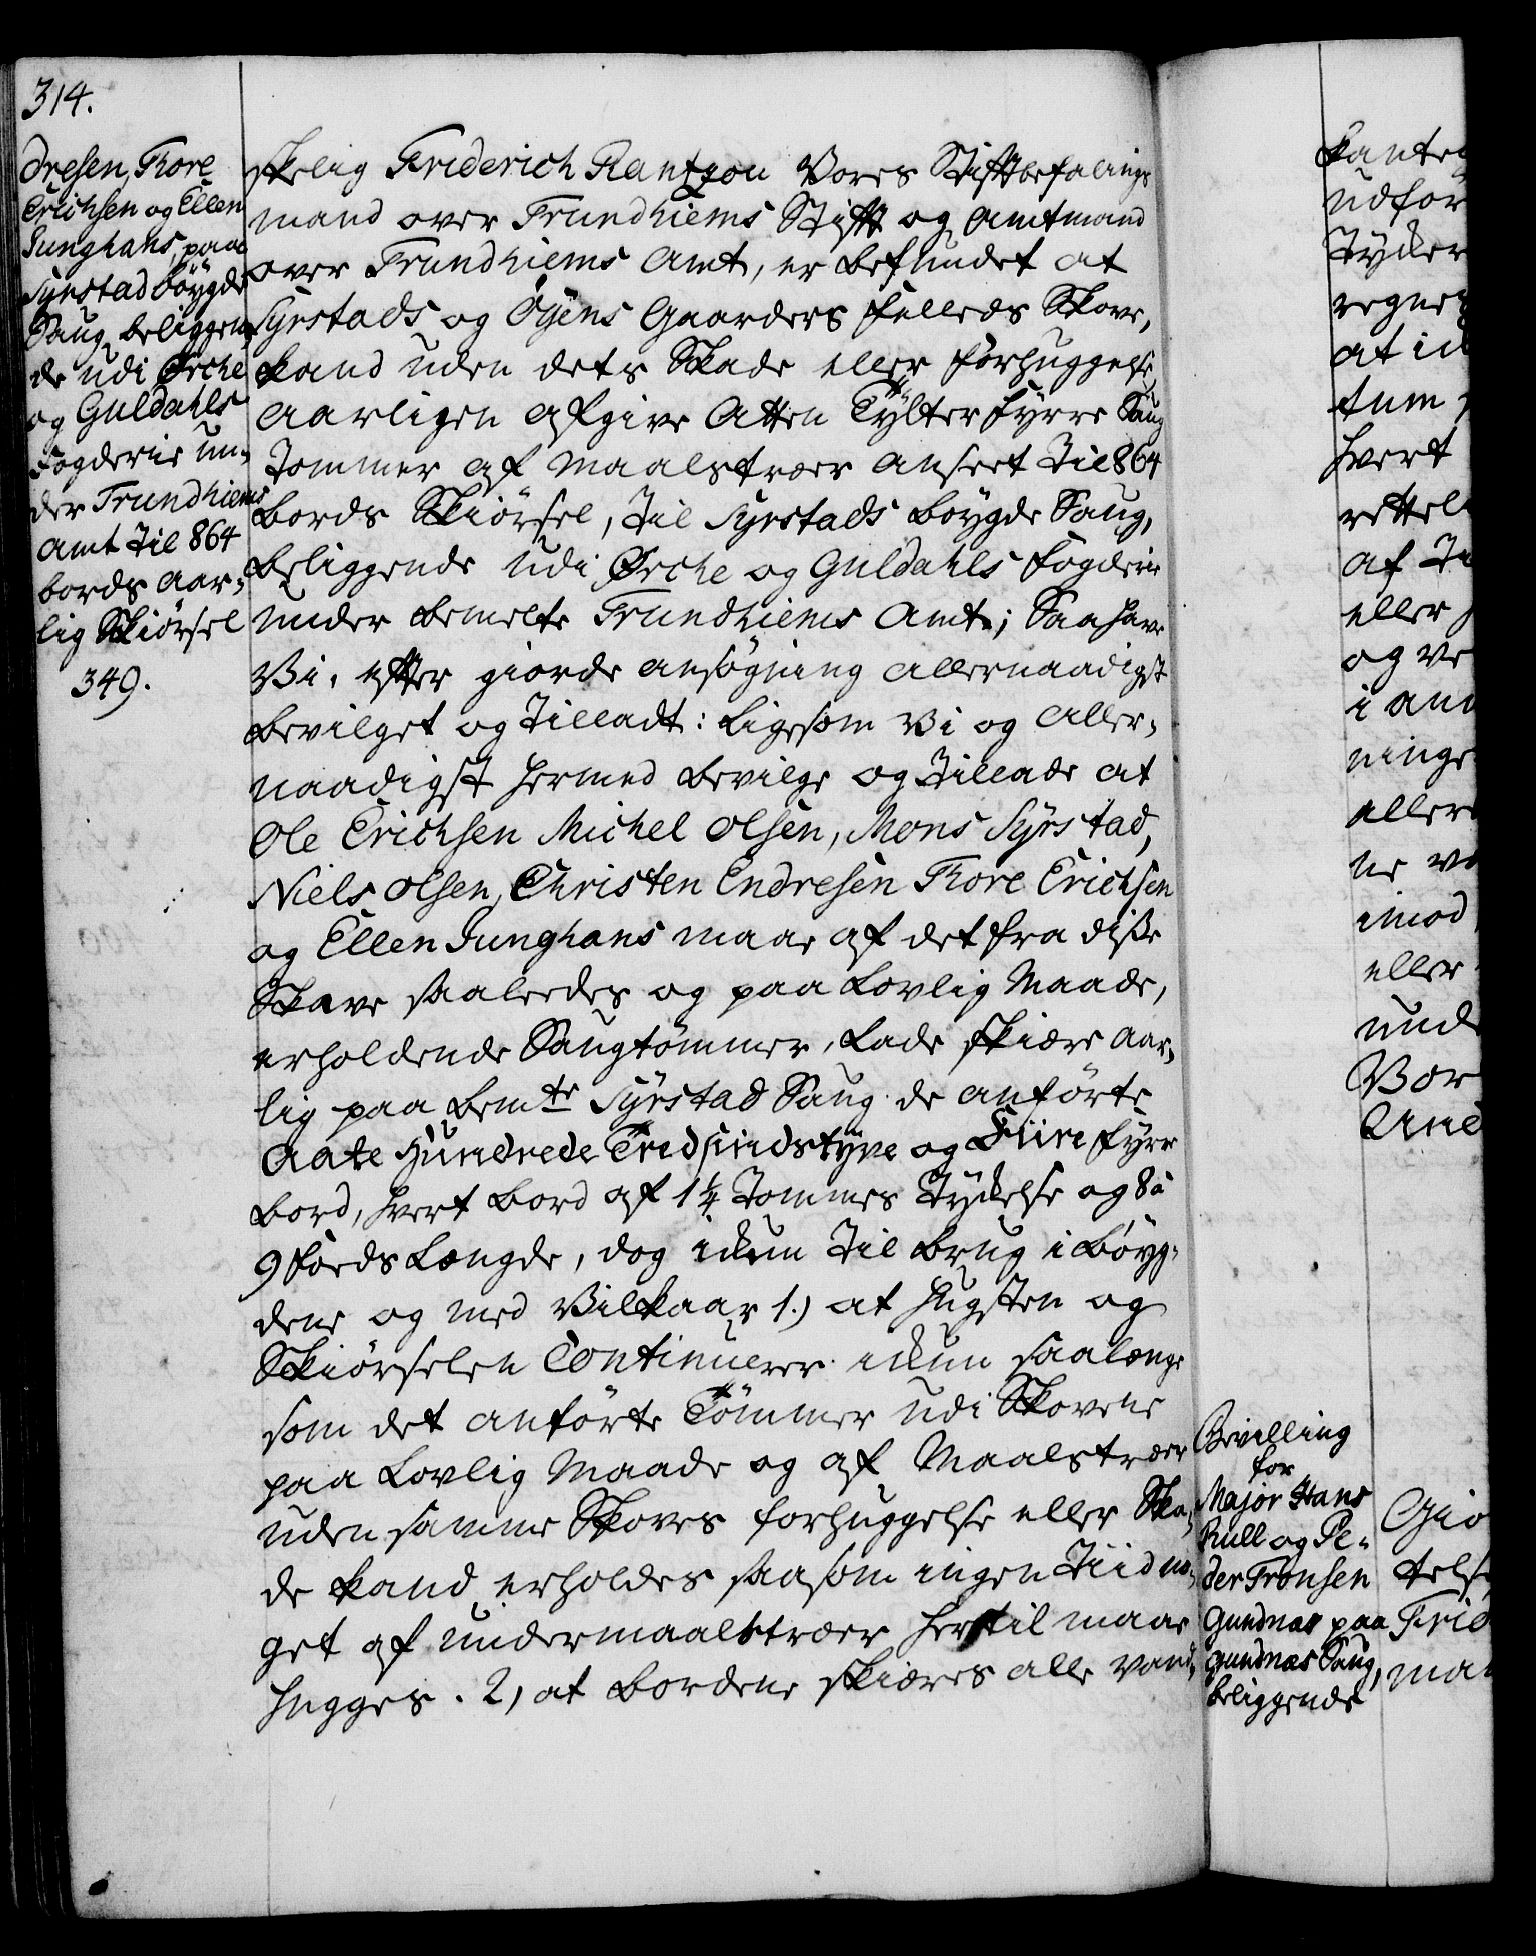 314.
dresen, Thore
Erichsen og Ellen
Junghans, paa
Syrstad böygde
Saug, beliggen,
de udi Ørche
og Guldahls
Fogderie un,
der Trundhiems
Amt til 864
bords aar,
lig Skiörsel
349.
skelig Friderich Rantzou Vores Stiftbefalings
mand over Trundhiems Stift og Amtmand
over Trundhiems Amt, er befundet at
Syrstads og Öÿens Gaarders fælleds Skove,
kand uden dets Skade eller forhuggelse
aarligen afgive Atten Tylter fyrre Saug
Tommer af Maalstræer anseet til 864
bords Skiörsel, til Syrstads böygde Saug,
beliggende udi Ørche og Guldahls fogderie
under bemelte Trundhiems Amt; Saa have
Vi, efter giorde ansögning allernaadigst
bevilget og tilladt: Ligesom Vi og aller,
naadigst hermed bevilge og tillade at
Ole Erichsen Michel Olsen, Mons Syrstad,
Niels Olsen, Christen Endresen Thore Erichsen
og Ellen Junghans maae af det fra diße
Skove saaledes og paa lovlig Maade,
erholdende Saugtömmer, lade skiære aar,
lig paa bemte Syrstad Saug de anförte
Aatte Hundrede Tredsindstyve og Fiire fyrr
bord, hvert bord af 1¼ Tommes tykelse og 8 à
9 foeds længde, dog ikkun til brug i böyg,
dene og med Vilkaar 1.) at hugsten og
Skiörselen Continuerer ikkun saalænge
som det anförte Tömmer udi Skovene
paa lovlig Maade og af Maalstræer
uden samme Skoves forhuggelse eller Ska,
de kand erholdes saasom ingen tiid no,
get af undermaalstræer hertil maae
hugges. 2, at bordene skiæres alle vand,
udfor
tyker
regne
at ik
tum
hvert
af
eller
og ve
i
ninge
aller
ne
imod
eller
unde
Vor
Bevilling
for
Major Hans
Rull og Pe,
der Tronsen
Gundnæs paa
gundnæs Saug,
beliggende
Gio
telse
Frid